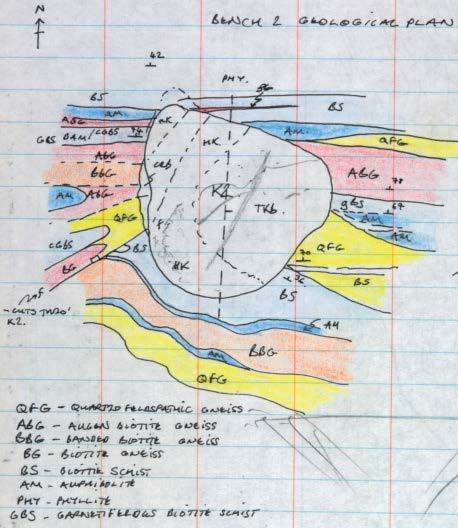 BENCH 2 GEOLOGICAL PLAN
N
42
PHY.
BS
AM
BS
ABG
GBS
74
HK
AM
QFG
ABG
BBG
K2
TKb.
ABG
78
AM
ABG
gBS
67
AM
AM
QFG
QFG
CGBS
BS
70
HK
BS
BG
BS
-CUTS THRO'
K2.
AM
BBG
AM
QFG
QFG - QUARTZO FELDSPATHIC GNEISS
ABG - AUGEN BIOTITE GNEISS
BBG - BANDED BIOTITE GNEISS
BG - BIOTITE GNEISS
BS - BIOTITE SCHIST
AM - AMPHIBOLITE
PHY - PHYLLITE
GBS - GARNETIFEROUS BIOTITE SCHIST